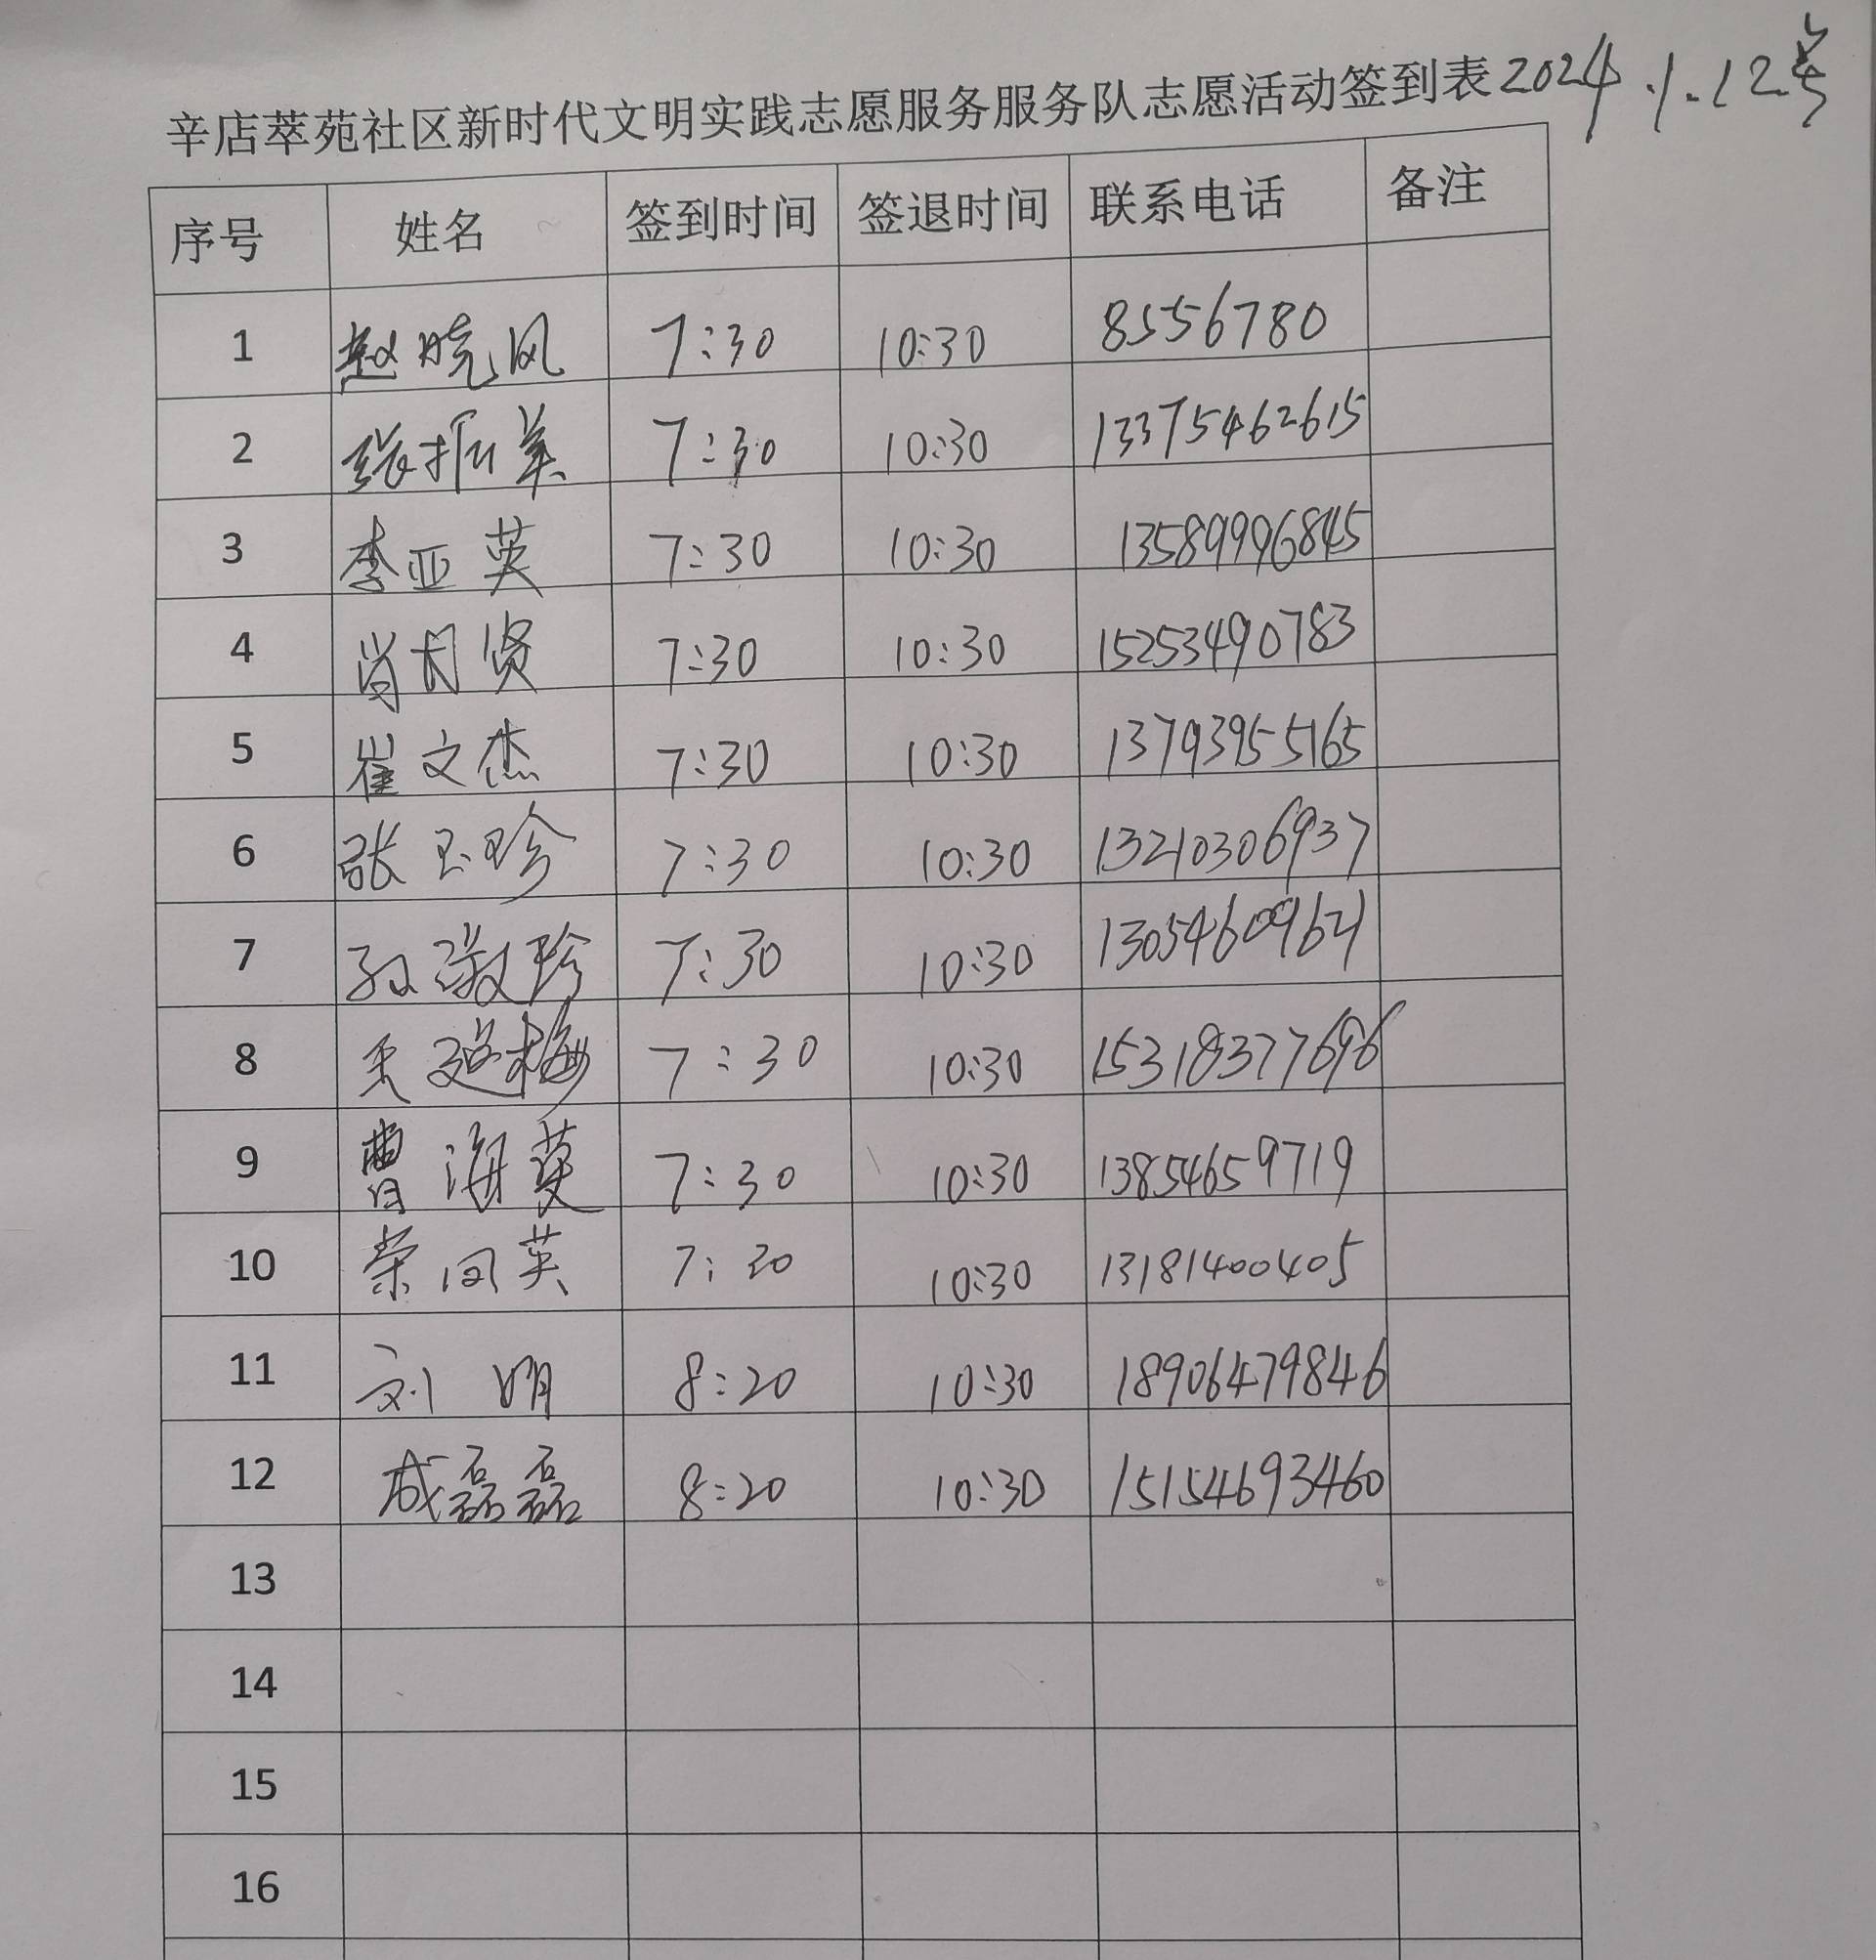 辛店萃苑社区新时代文明实践志愿服务服务队志愿活动签到表 2024.1.12号
序号 姓名 签到时间 签退时间 联系电话 备注
1 赵晓风 7:30 10:30 8556780
2 张振英 7:30 10:30 13375462615
3 李亚英 7:30 10:30 13589996845
4 肖月贤 7:30 10:30 15253490783
5 崔文杰 7:30 10:30 13793955165
6 张玉珍 7:30 10:30 13210306937
7 孙淑珍 7:30 10:30 13054609621
8 王延梅 7:30 10:30 15318377696
9 曹海英 7:30 10:30 13854659719
10 荣凤英 7:30 10:30 13181400405
11 刘明 8:20 10:30 18906479846
12 成磊磊 8:20 10:30 15154693460
13
14
15
16